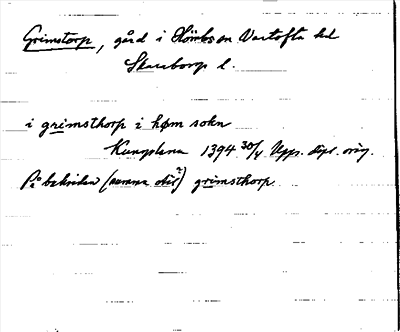 Grimstorp, gård i Hömbs sn Vartofta hd
Skarborgs l.
i grimsthorp i høm sokn
Kungslena 1394 30/4 Upps. dipl. orig.
På baksidan (samma stil?) grimsthorp